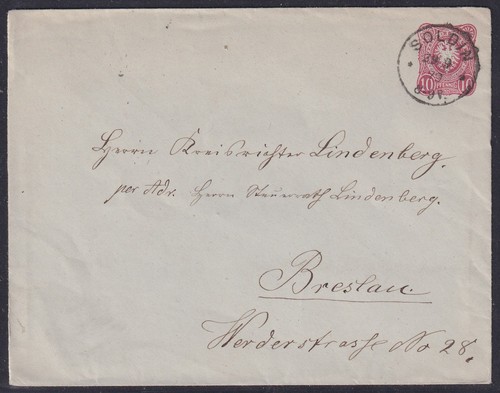 SOLDIN
10 PFENNIG 10
Herrn Kreisrichter Lindenberg.
per Adr. Herrn Steuerrath Lindenberg.
Breslau.
Werderstrasse No 28.